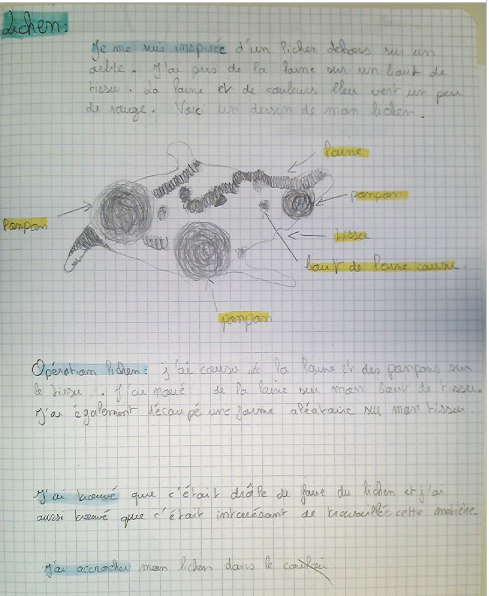 Lichen:
Je me suis inspirée d'un lichen dehors sur un
arbre. J'ai pris de la laine sur un bout de
tissu. La laine et de couleurs bleu vert un peu
de rouge. Voic un dessin de mon lichen.
laine
Pompom
pompom
tissu
bout de laine cousue
pompom
Opération lichen: j'ai cousu de la laine et des pompons sur
le tissu. J'ai noué de la laine sur mon bout de tissu.
J'ai également découpé une forme aléatoire sur mon tissu.
J'ai trouvé que c'était drôle de faire du lichen et j'ai
aussi trouvé que c'était intéresént de travaillée cette matière.
J'ai accrocher mon lichen dans le couloir